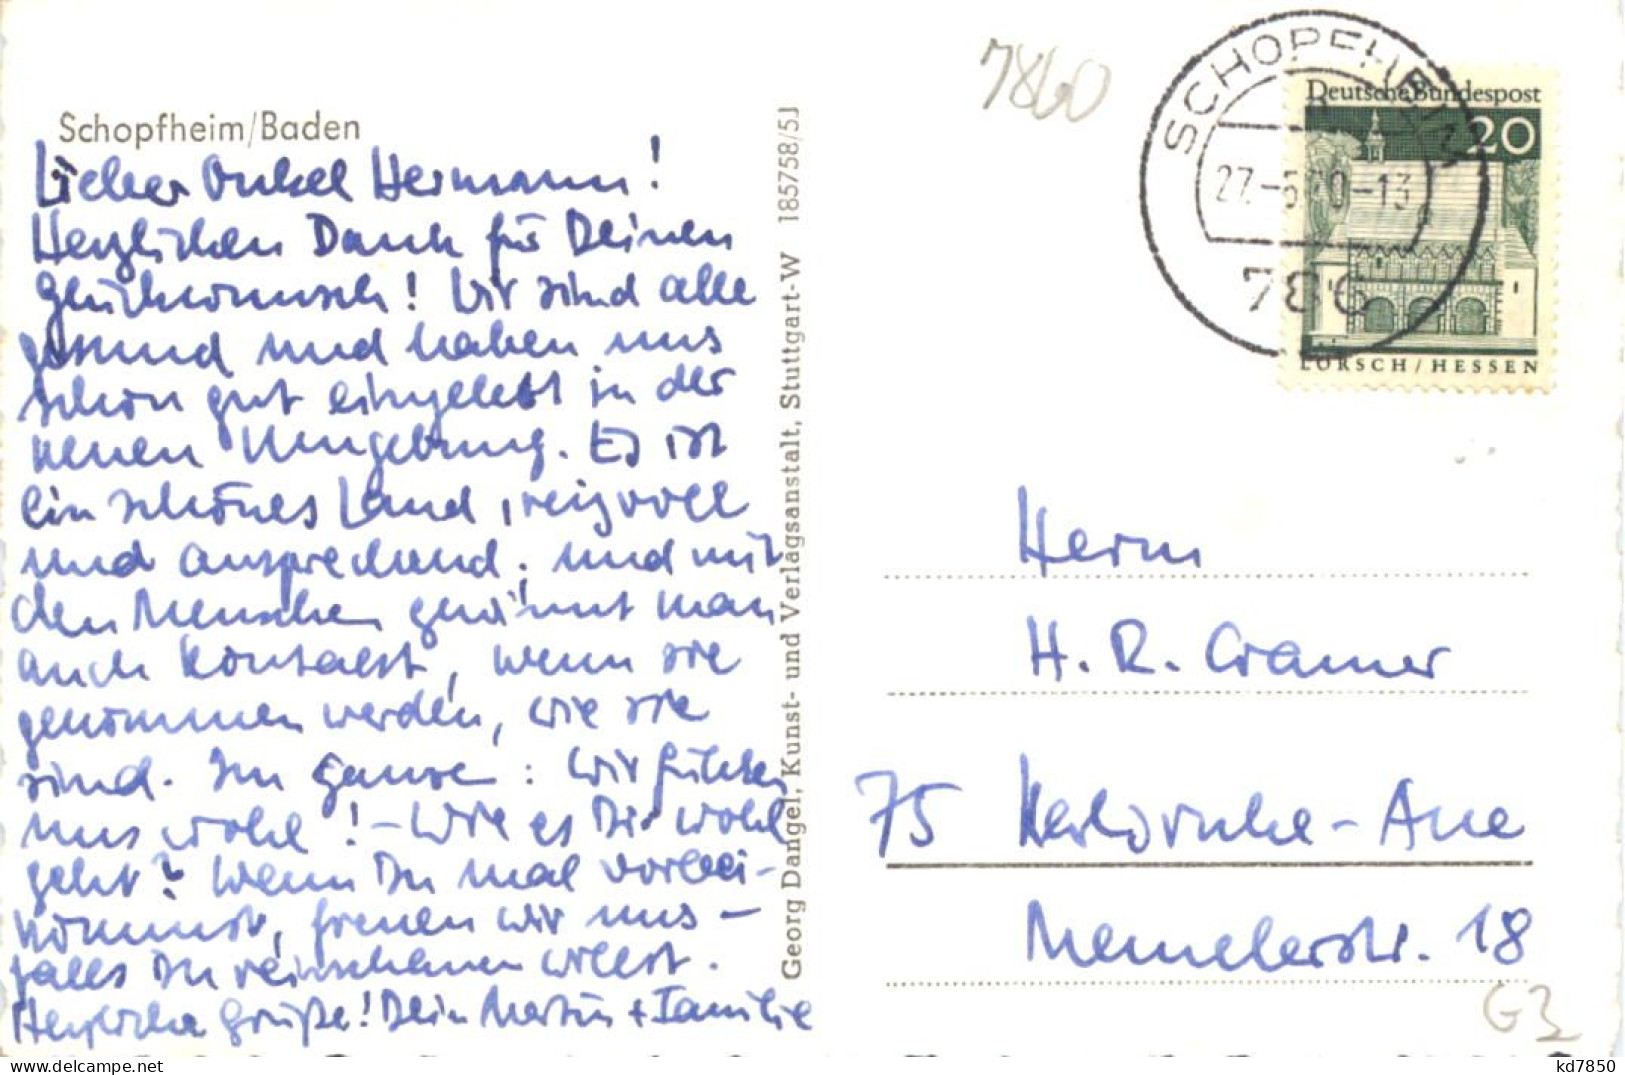 7860
SCHOPFHEIM
27.-5.70-13
786
Deutsche Bundespost
20
LORSCH/HESSEN
Schopfheim/Baden
Lieber Onkel Hermann!
Herzlichen Dank für Deinen
Glückwunsch! Wir sind alle
gesund und haben uns
schon gut eingelebt in der
neuen Umgebung. Es ist
ein schönes Land, reizvoll
und ansprechend; und mit
den Menschen gewinnt man
auch Kontakt, wenn sie
genommen werden, wie sie
sind. Im ganzen: wir fühlen
uns wohl! – Wie es Dir wohl
geht? Wenn Du mal vorbei-
kommst, freuen wir uns –
falls Du reinschauen willst.
Herzliche Grüße! Dein Martin + Familie
Georg Dangel, Kunst- und Verlagsanstalt, Stuttgart-W 185758/5J
Herrn
H. R. Cramer
75 Karlsruhe-Aue
Memelerstr. 18
G3
kd7850